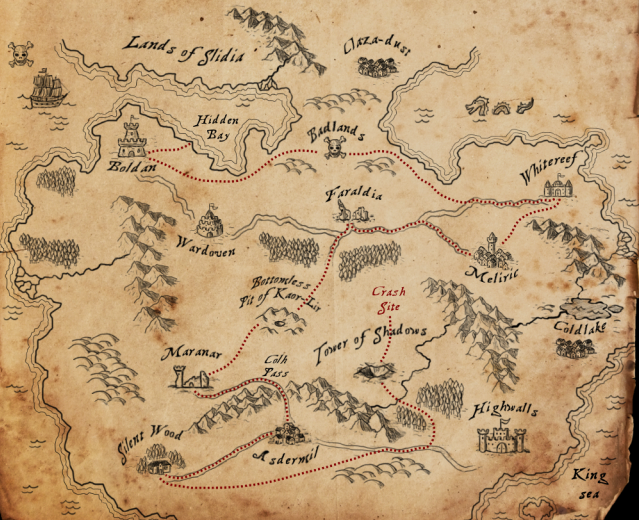 Lands of Slidia
Claza-dust
Hidden
Bay
Badlands
Boldan
Whitereef
Faraldia
Wardoven
Meliric
Bottomless
Pit of Kaor-Lir
Crash
Site
Coldlake
Tower of Shadows
Maranar
Colh
Pass
Highwalls
Silent Wood
Asdermil
King
sea